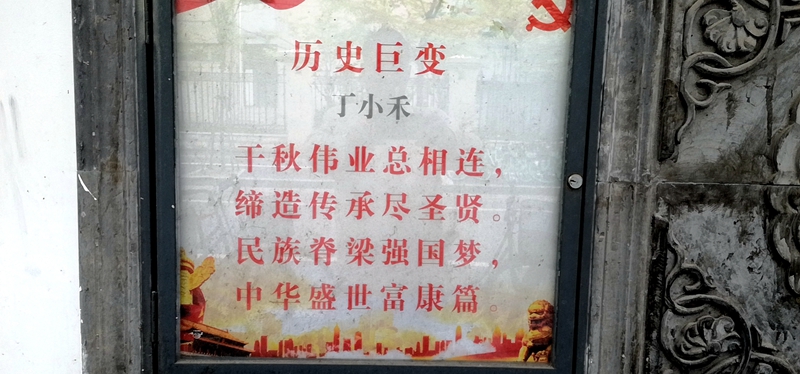 历史巨变
丁小禾
千秋伟业总相连，
缔造传承尽圣贤。
民族脊梁强国梦，
中华盛世富康篇。